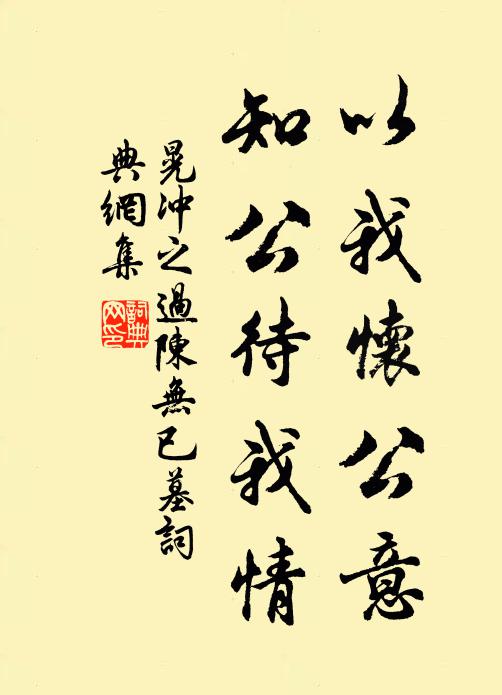 以我懷公意
知公待我情
晁沖之過陳無已墓詞
典網集
詞典網印